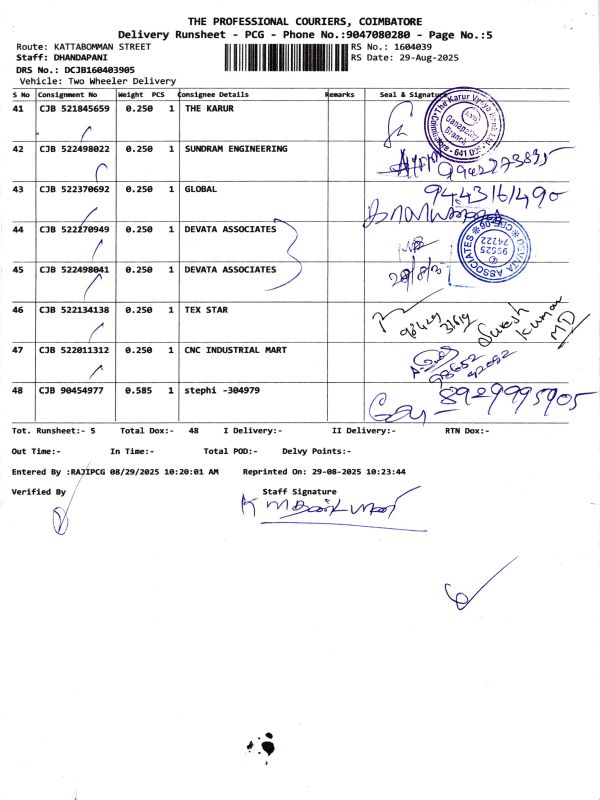 THE PROFESSIONAL COURIERS, COIMBATORE
Delivery Runsheet - PCG - Phone No.:9047080280 - Page No.:5
Route: KATTABOMMAN STREET RS No.: 1604039
Staff: DHANDAPANI RS Date: 29-Aug-2025
DRS No.: DCJB160403905
Vehicle: Two Wheeler Delivery
S No Consignment No Weight PCS Consignee Details Remarks Seal & Signature
41 CJB 521845659 0.250 1 THE KARUR
42 CJB 522498022 0.250 1 SUNDRAM ENGINEERING
9942273835
43 CJB 522370692 0.250 1 GLOBAL 9443161490
44 CJB 522270949 0.250 1 DEVATA ASSOCIATES
DEVATA ASSOCIATES CBE-06 95525 74722
45 CJB 522498041 0.250 1 DEVATA ASSOCIATES
46 CJB 522134138 0.250 1 TEX STAR
Suresh Kumar MD
47 CJB 522011312 0.250 1 CNC INDUSTRIAL MART
48 CJB 90454977 0.585 1 stephi -304979
8929995905
Tot. Runsheet:- 5 Total Dox:- 48 I Delivery:- II Delivery:- RTN Dox:-
Out Time:- In Time:- Total POD:- Delvy Points:-
Entered By :RAJIPCG 08/29/2025 10:20:01 AM Reprinted On: 29-08-2025 10:23:44
Verified By Staff Signature